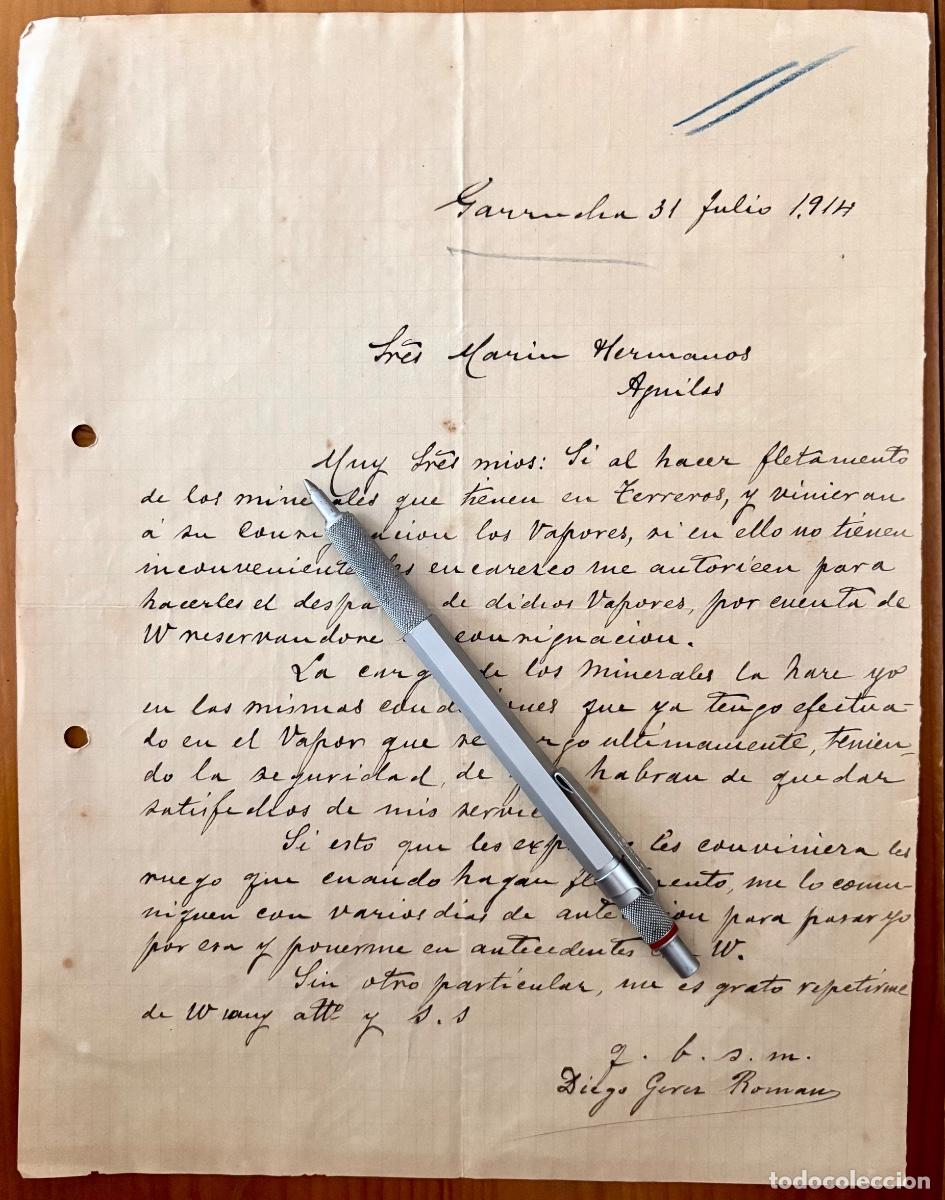 Garrucha 31 Julio 1,914
Sres Marin Hermanos
Aguilas
Muy Sres mios: Si al hacer fletamento
de los minerales que tienen en Terreros, y vinieran
á su consignacion los Vapores, si en ello no tienen
inconveniente les encaresco me autoricen para
hacerles el despacho de dichos Vapores, por cuenta de
W reservandore consignacion.
La carga de los minerales la hare yo
en las mismas condiciones que ya tengo efectua-
do en el Vapor que se cargo ultimamente, tenien-
do la seguridad, de habran de quedar
satisfechos de mis
Si esto que les les conviniera les
ruego que cuando hagan fletamento, me lo comu-
niquen con varios dias de antelacion para pasar yo
por esa y ponerme en antecedentes W.
Sin otro particular, me es grato repetirme
de W muy atto y S. S
q. b. s. m.
Diego Gerez Roman
todocoleccion